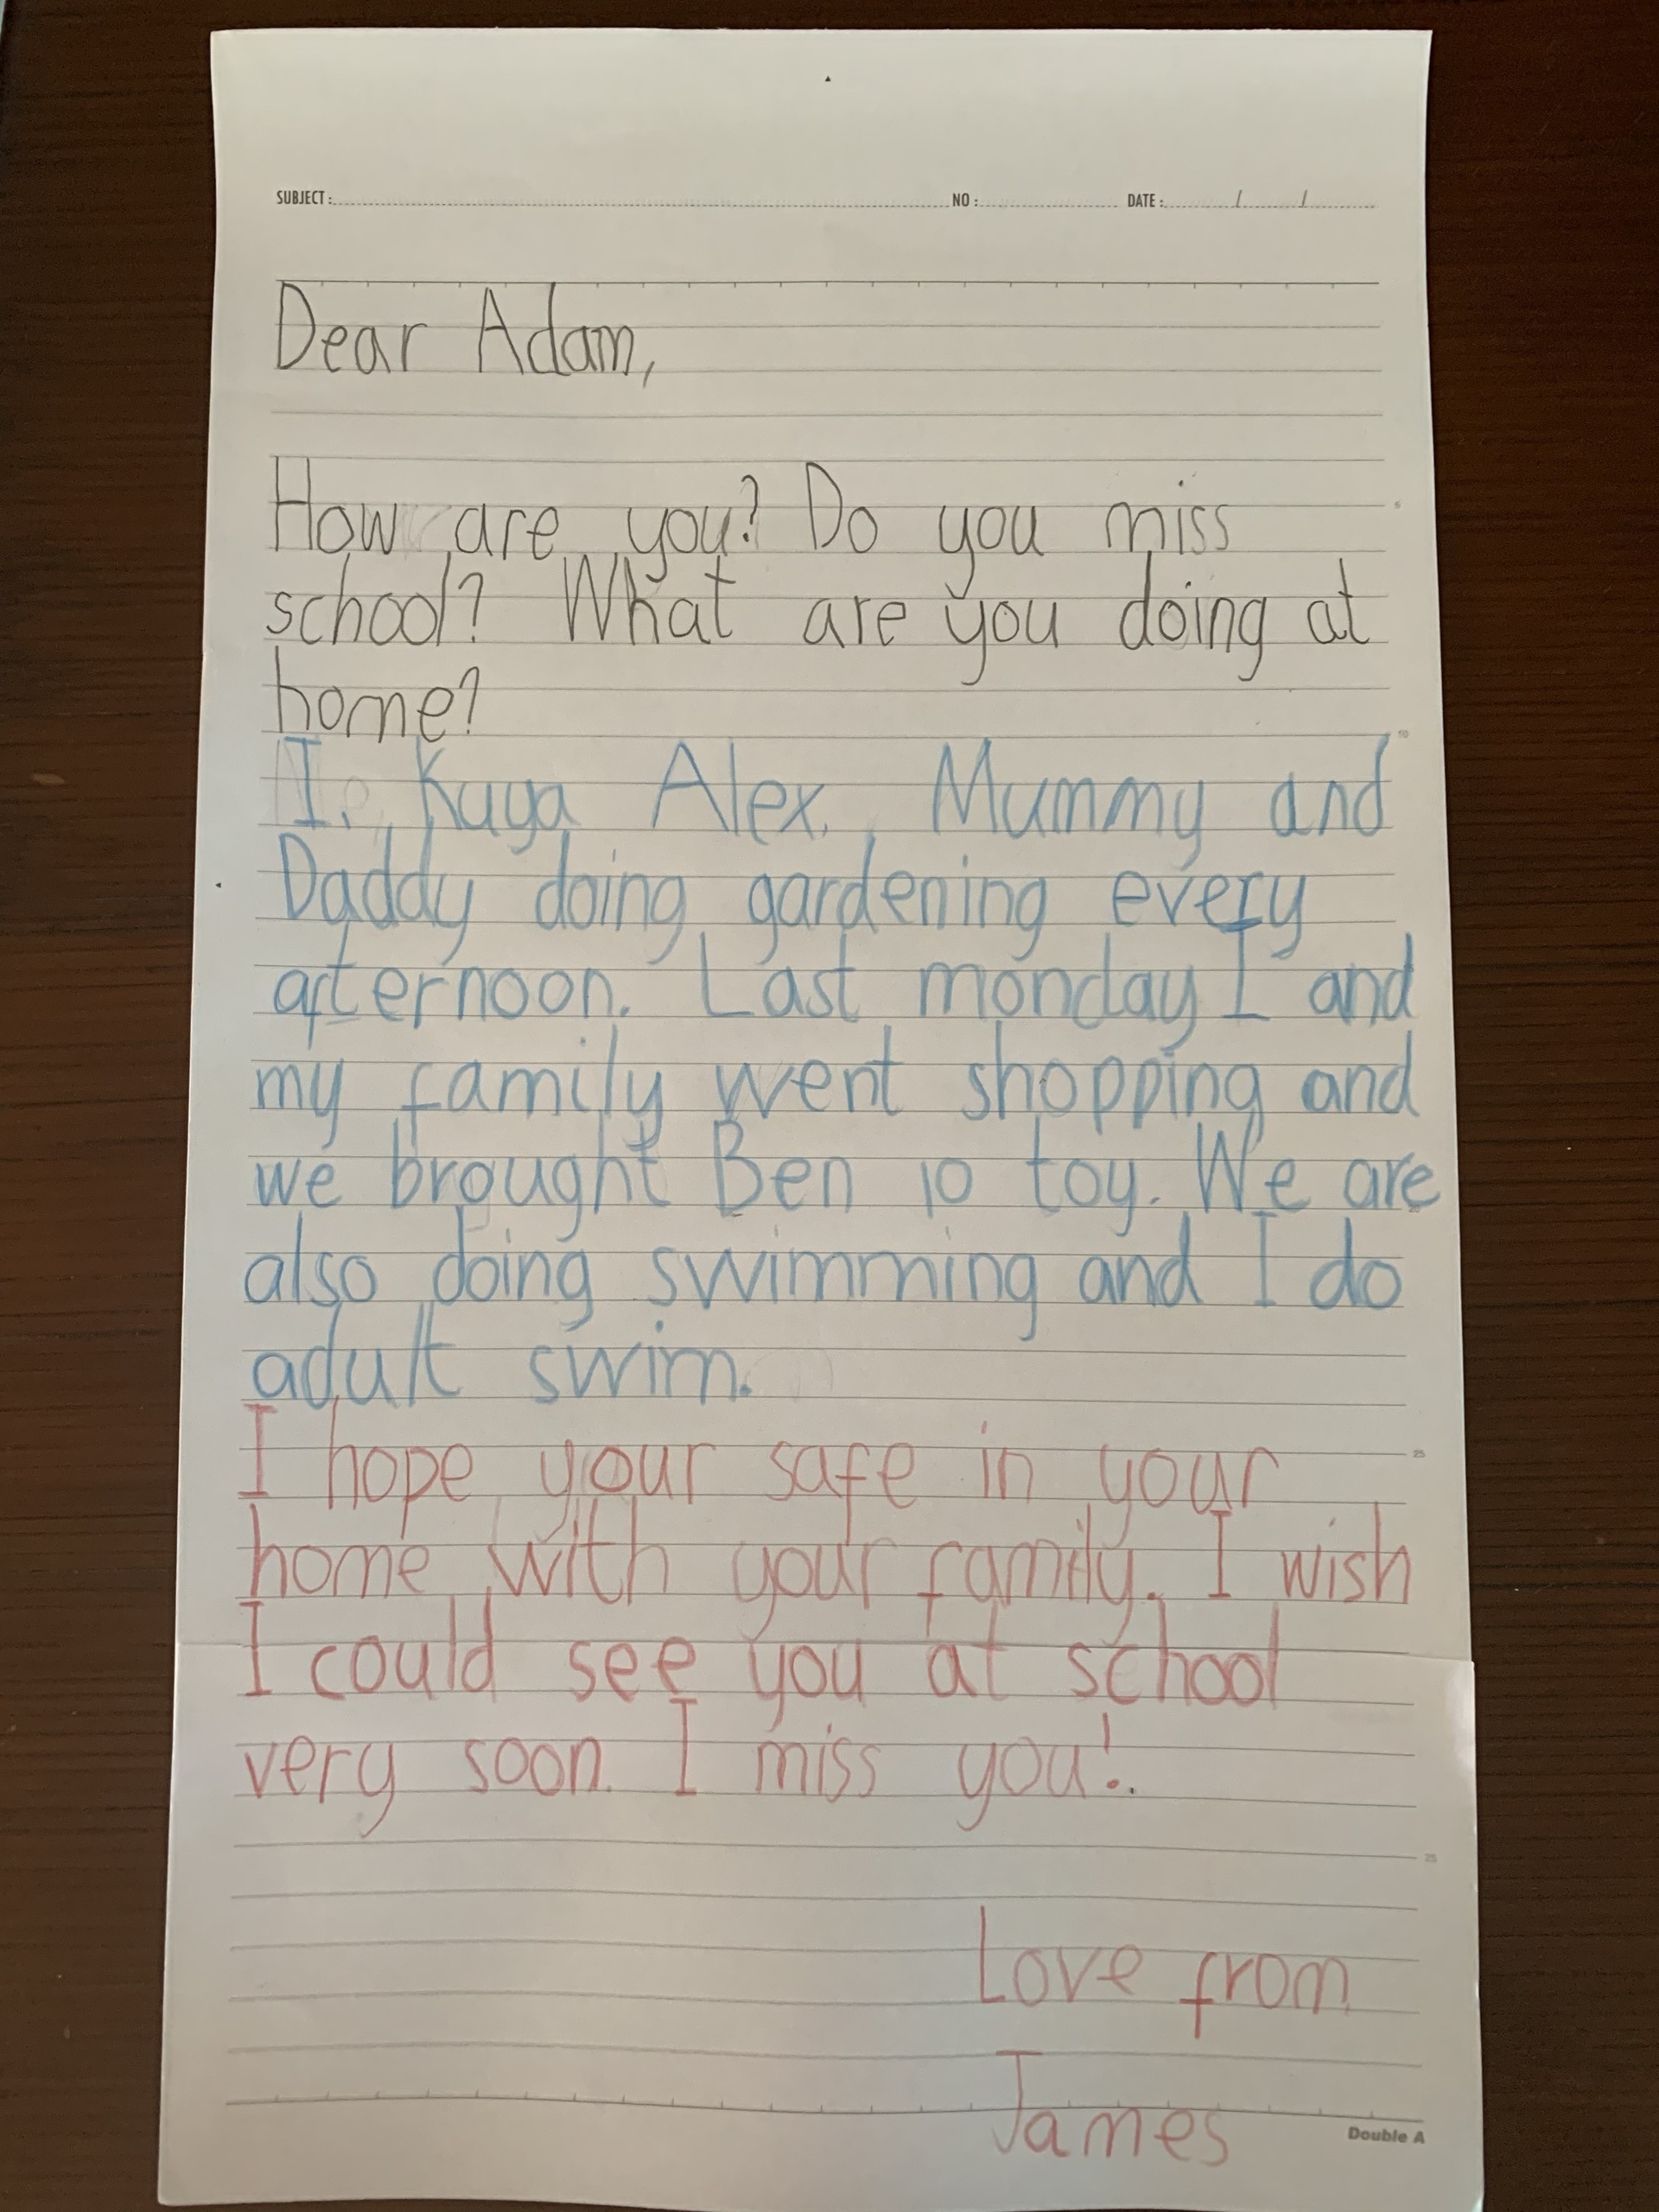 SUBJECT : NO : DATE : / /
Dear Adam,
How are you? Do you miss
school? What are you doing at
home?
I, Kuya Alex, Mummy and
Daddy doing gardening every
afternoon. Last monday I and
my family went shopping and
we brought Ben 10 toy. We are
also doing swimming and I do
adult swim.
I hope your safe in your
home with your family. I wish
I could see you at school
very soon. I miss you!.
Love from
James
Double A